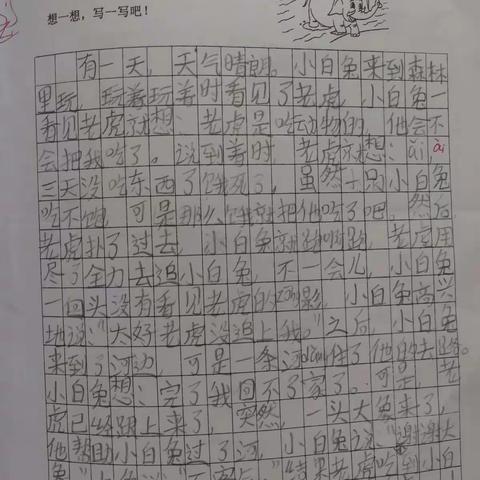 想一想，写一写吧！
有一天，天气晴朗。小白兔来到森林
里玩，玩着玩着时看见了老虎，小白兔一
看见老虎就想：老虎是吃动物的，他会不
会把我吃了。说到着时，老虎就想：ǎi，ài
三天没吃东西了饿死了，虽然一只小白兔
吃不饱，可是那么饿就把他吃了吧，然后，
老虎扑了过去，小白兔就跑啊跑，老虎用
尽了全力去追小白兔，不一会儿，小白兔
一回头没有看见老虎的影，小白兔高兴
地说：“太好老虎没追上我。”之后，小白兔
来到了河边，可是一条河住了他的去路。
小白兔想：完了我回不了家了。可是，老
虎已经跟上来了，突然，一头大象来了，
他帮助小白兔过了河，小白兔说：“谢谢大
象”结果老虎吃到小白